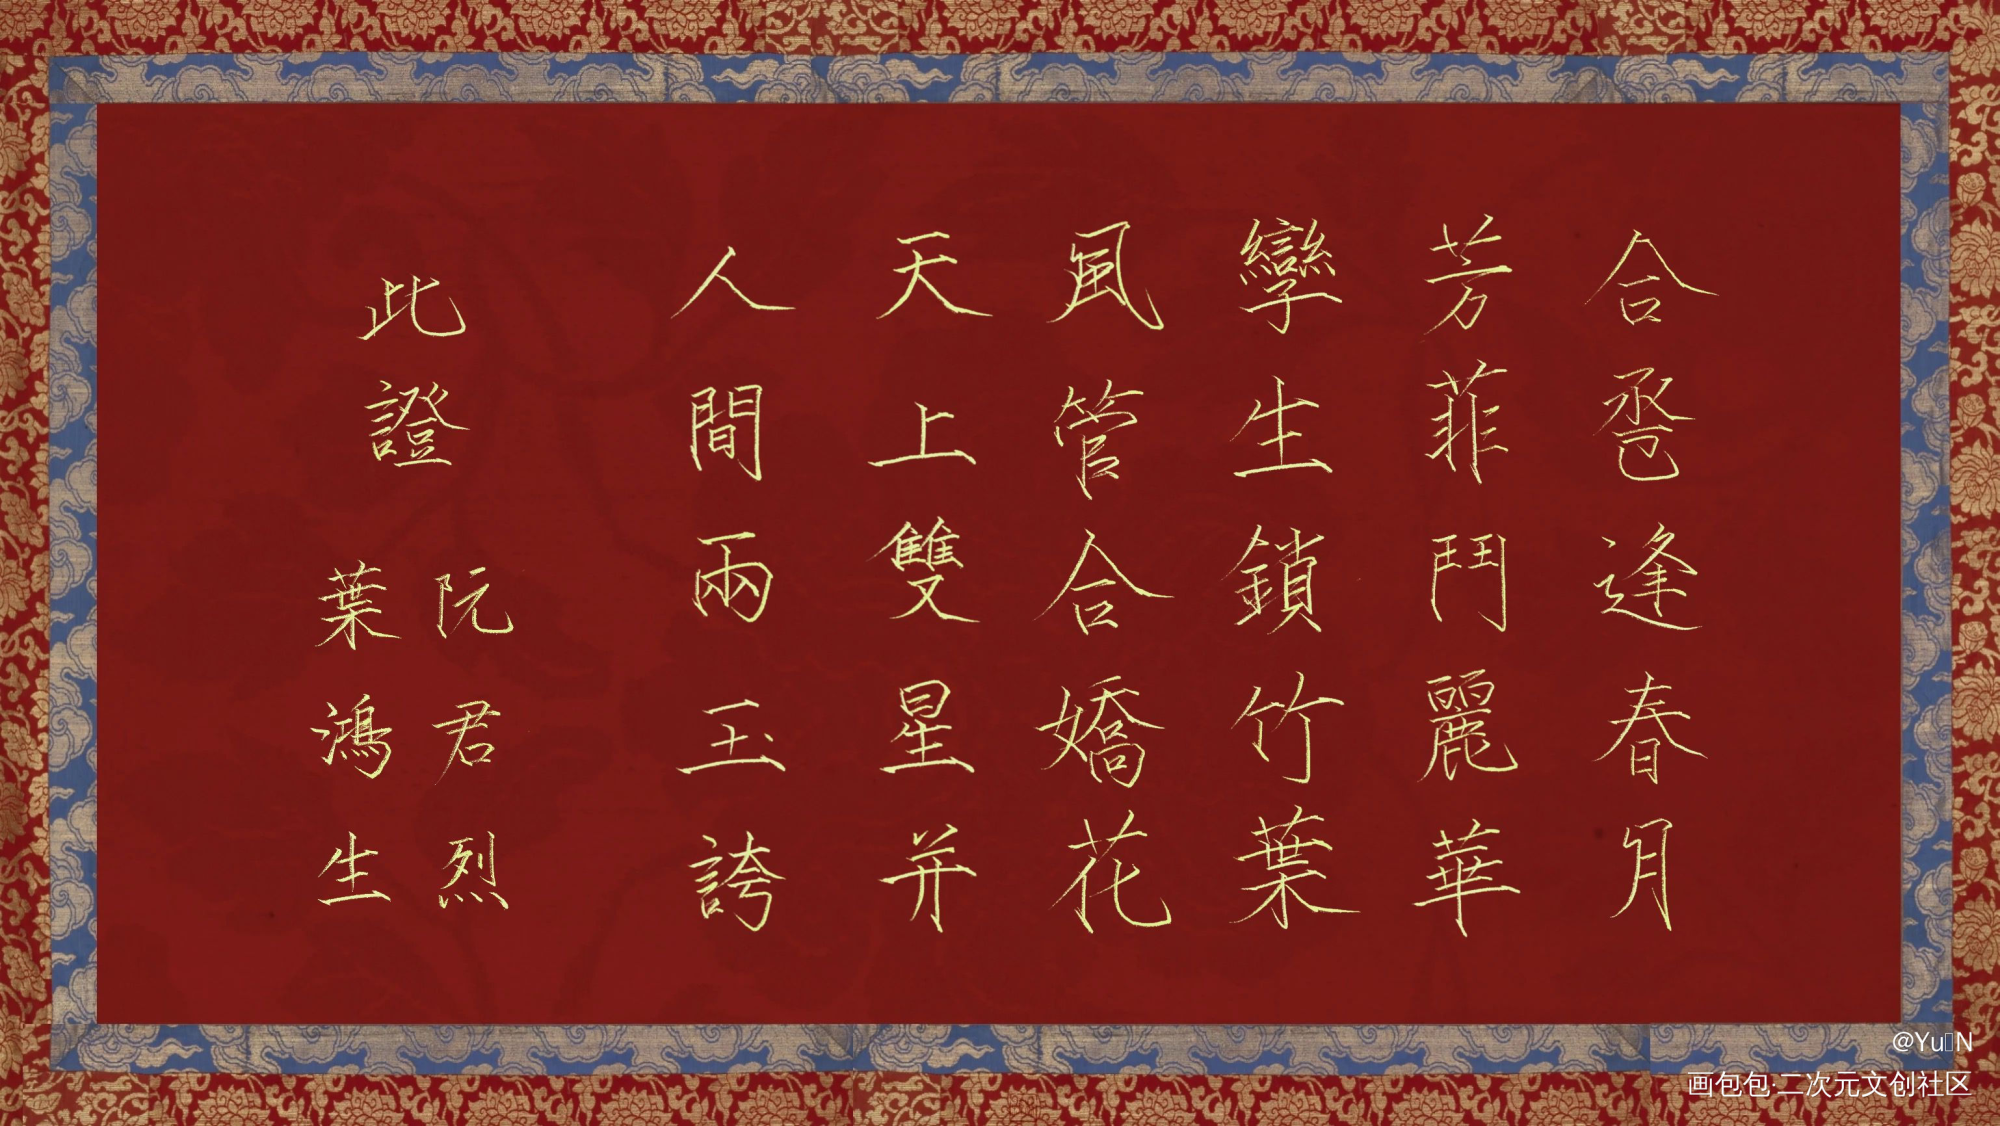 合巹逢春月
芳菲鬥麗華
孿生鎖竹葉
風管合嬌花
天上雙星并
人間兩玉誇
此證
阮君烈
葉鴻生
@Yu
N
画包包·二次元文创社区